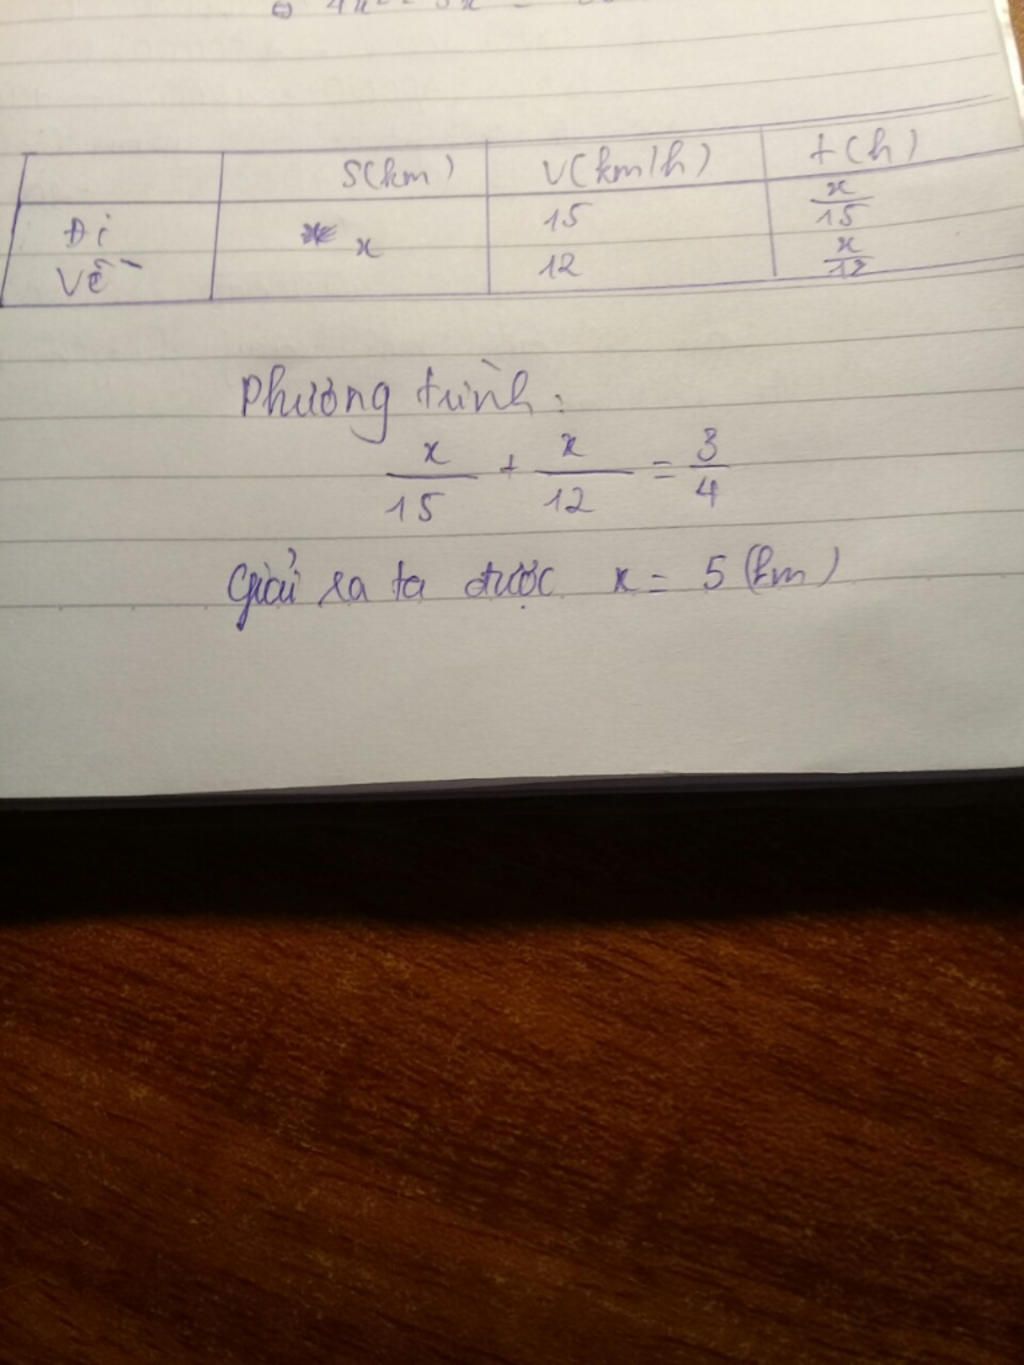 S(km) V(km/h) t(h)
Đi x 15 x/15
Về 12 x/12
Phương trình:
x/15 + x/12 = 3/4
Giải ra ta được x = 5 (km)